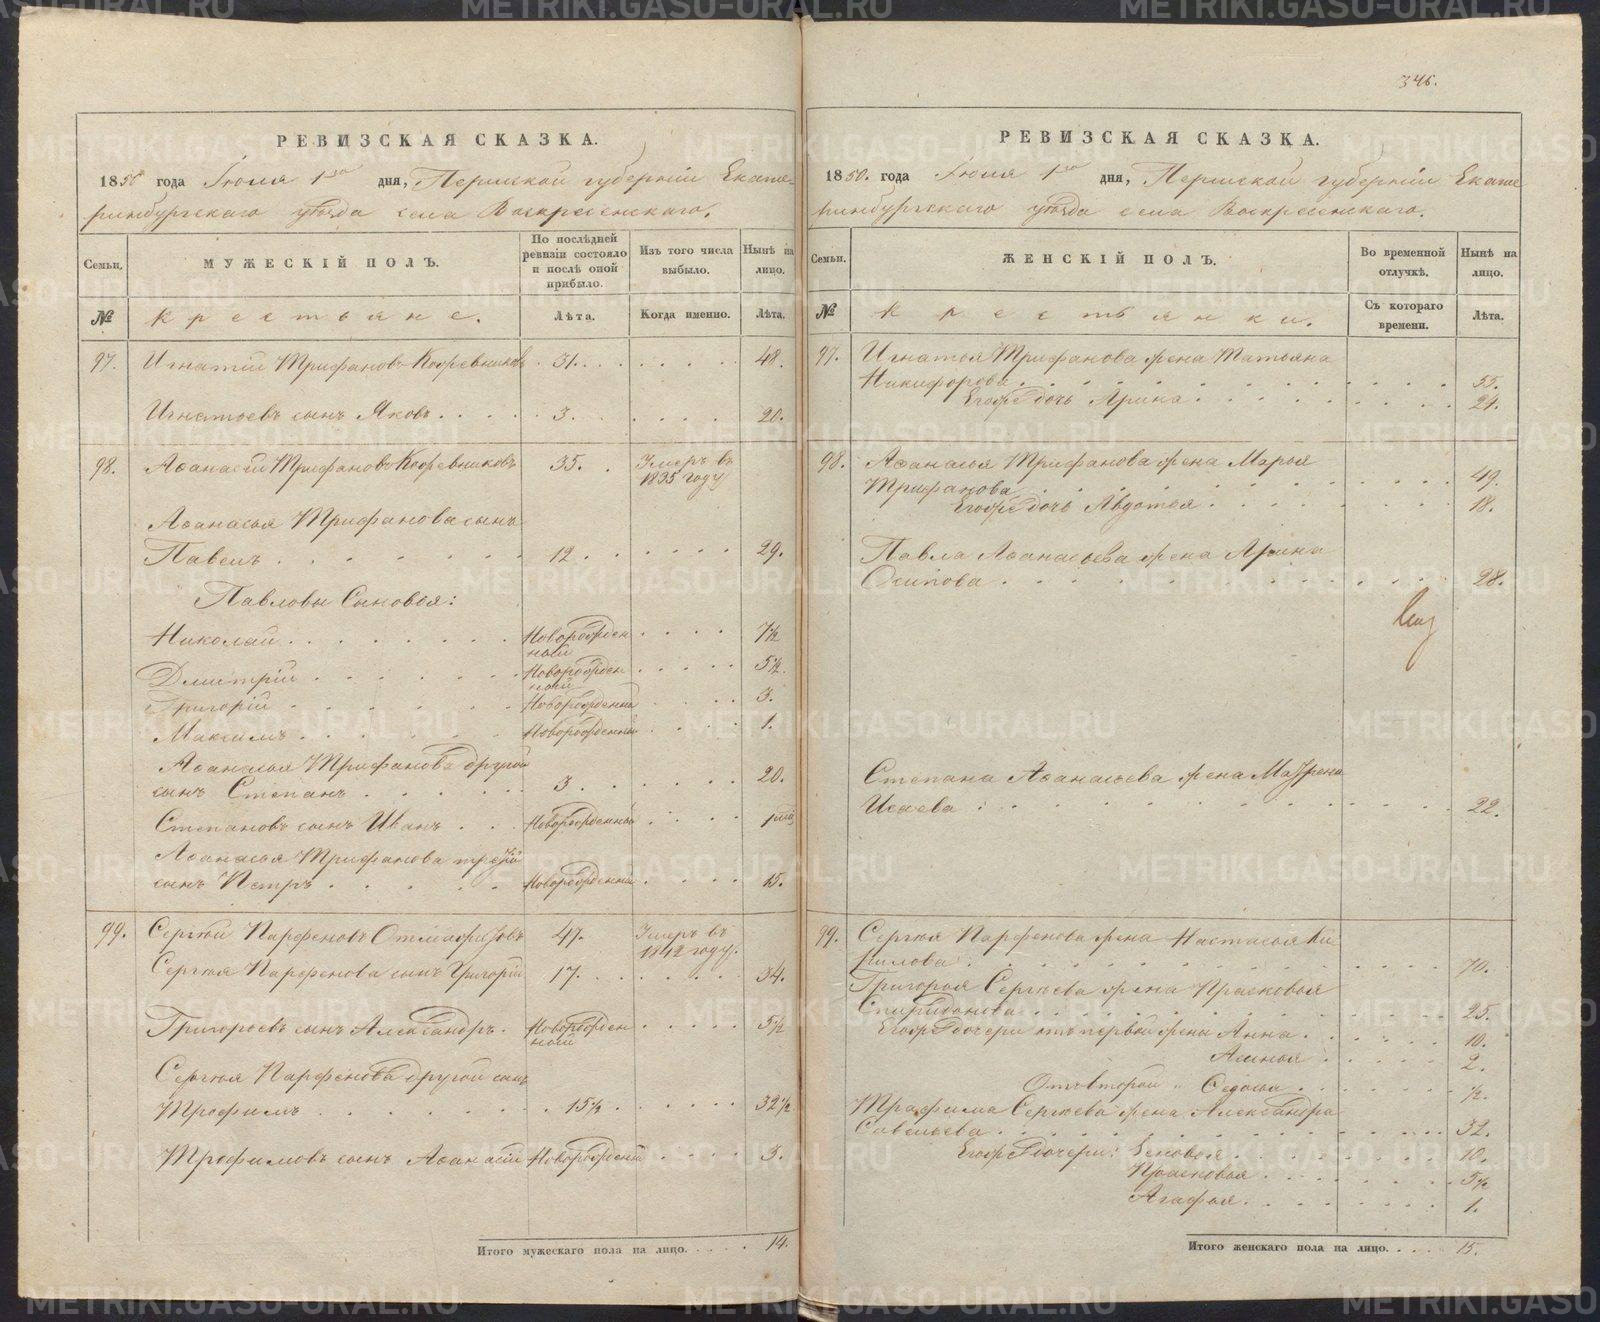 РЕВИЗСКАЯ СКАЗКА.
1850 года Іюля 1го дня, Пермской губерніи Екате-
ринбургскаго уѣзда села Воскресенскаго.
Семьи.
МУЖЕСКІЙ ПОЛЪ.
По послѣдней ревизіи состояло и послѣ оной прибыло.
Изъ того числа выбыло.
Нынѣ на лицо.
№
Крестьяне.
Лѣта.
Когда именно.
Лѣта.
97. Игнатій Трифановъ Кожевниковъ 31. 48.
Игнатьевъ сынъ Яковъ 3. 20.
98. Аѳанасій Трифановъ Кожевниковъ 35. Умеръ въ
1835 году
Аѳанасья Трифанова сынъ
Павелъ 12. 29.
Павловы Сыновья:
Николай Новорожден 7½
ный
Дмитрій Новорожден 5½.
ный
Григорій Новорожденный 3.
Максимъ Новорожденный 1.
Аѳанасья Трифанова другой
сынъ Степанъ 3. 20.
Степановъ сынъ Иванъ Новорожденный 1
Аѳанасья Трифанова третій
сынъ Петръ Новорожденный 15.
99. Сергѣй Парфеновъ 47. Умеръ въ
1842 году.
Сергѣя Парфенова сынъ Григорій 17. 34.
Григорьевъ сынъ Александръ. Новорожден 5½
ный
Сергѣя Парфенова другой сынъ
Трофимъ 15½ 32½
Трофимовъ сынъ Аѳанасій Новорожденный 3.
Итого мужескаго пола на лицо. 14.
346.
РЕВИЗСКАЯ СКАЗКА.
1850. года Іюля 1го дня, Пермской губерніи Екате
ринбургскаго уѣзда села Воскресенскаго.
Семьи.
ЖЕНСКІЙ ПОЛЪ.
Во временной отлучкѣ.
Нынѣ на лицо.
№
Крестьянки.
Съ котораго времени.
Лѣта.
97. Игнатья Трифанова жена Татьяна
Никифорова 55.
Егожъ дочь Арина 24.
98. Аѳанасья Трифанова жена Марья
Трифанова 49.
Егожъ дочь Авдотья 18.
Павла Аѳанасьева жена Арина
Осипова 28.
Степана Аѳанасьева жена Матрена
Исаева 22.
99. Сергѣя Парфенова жена Настасья Ки
рилова 70.
Григорья Сергѣева жена Прасковья
Спиридонова 25.
Егожъ дочери отъ первой жены Анна 10.
Аксинья 2.
Отъ второй " Ѳедосья ½.
Трафима Сергѣева жена Александра
Савельева 32.
Егожъ дочери: 10.
Прасковья 5½
Агафья 1.
Итого женскаго пола на лицо. 15.
METRIKI.GASO-URAL.RU